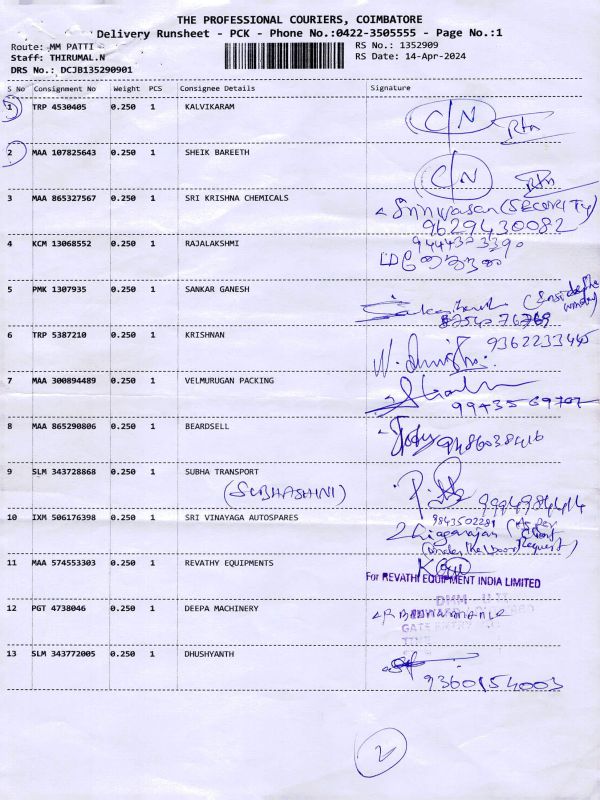 THE PROFESSIONAL COURIERS, COIMBATORE
Delivery Runsheet - PCK - Phone No.:0422-3505555 - Page No.:1
Route: MM PATTI
Staff: THIRUMAL.N
DRS No.: DCJB135290901
RS No.: 1352909
RS Date: 14-Apr-2024
S No Consignment No Weight PCS Consignee Details Signature
1 TRP 4530405 0.250 1 KALVIKARAM C/N Rtn
2 MAA 107825643 0.250 1 SHEIK BAREETH C/N Rtn
3 MAA 865327567 0.250 1 SRI KRISHNA CHEMICALS Srinivasan (SECURITY)
9629430082
4 KCM 13068552 0.250 1 RAJALAKSHMI
5 PMK 1307935 0.250 1 SANKAR GANESH
6 TRP 5387210 0.250 1 KRISHNAN 9362233445
7 MAA 300894489 0.250 1 VELMURUGAN PACKING
8 MAA 865290806 0.250 1 BEARDSELL 9486038416
9 SLM 343728868 0.250 1 SUBHA TRANSPORT
(SUBHASHINI) 9994984414
10 IXM 506176398 0.250 1 SRI VINAYAGA AUTOSPARES 9843502281
Thiagarajan (As per Client Request)
(under the door)
11 MAA 574553303 0.250 1 REVATHY EQUIPMENTS
For REVATHI EQUIPMENT INDIA LIMITED
12 PGT 4738046 0.250 1 DEEPA MACHINERY
GATE ENTRY
TIME
13 SLM 343772005 0.250 1 DHUSHYANTH
9360154003
2